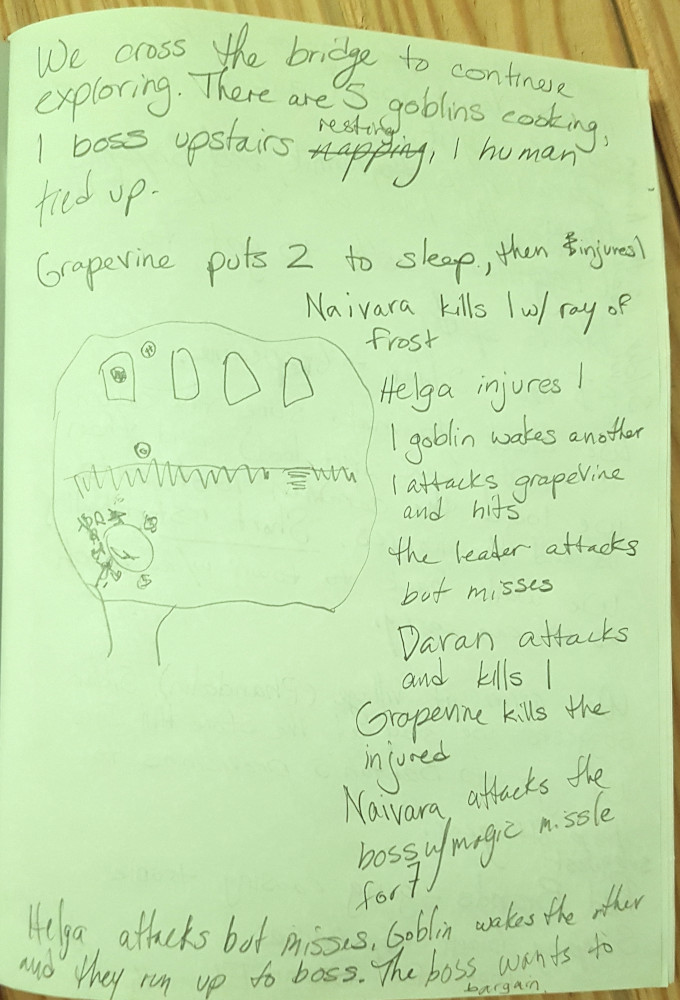 We cross the bridge to continue
exploring. There are 5 goblins cooking,
1 boss upstairs napping resting, 1 human
tied up.
Grapevine puts 2 to sleep, then injures 1
Naivara kills 1 w/ ray of
frost
Helga injures 1
1 goblin wakes another
1 attacks grapevine
and hits
the leader attacks
but misses
Daran attacks
and kills 1
Grapevine kills the
injured
Naivara attacks the
boss w/ magic missle
for 7
Helga attacks but misses. Goblin wakes the other
and they run up to boss. The boss wants to
bargain.